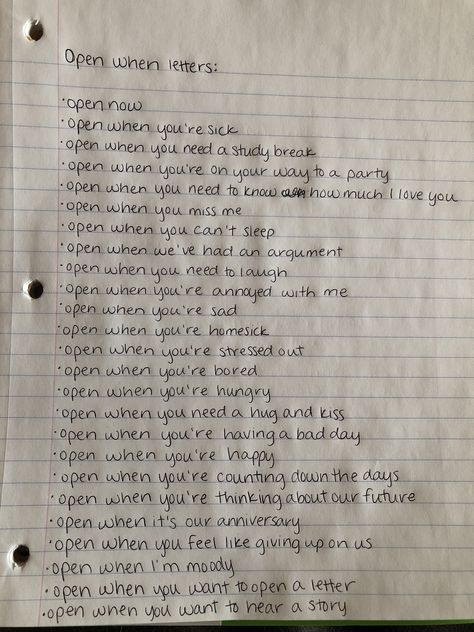 Open when letters:
·open now
·open when you're sick
·open when you need a study break
·open when you're on your way to a party
·open when you need to know how much I love you
·open when you miss me
·open when you can't sleep
·open when we've had an argument
·open when you need to laugh
·open when you're annoyed with me
·open when you're sad
·open when you're homesick
·open when you're stressed out
·open when you're bored
·open when you're hungry
·open when you need a hug and kiss
·open when you're having a bad day
·open when you're happy
·open when you're counting down the days
·open when you're thinking about our future
·open when it's our anniversary
·open when you feel like giving up on us
·open when I'm moody
·open when you want to open a letter
·open when you want to hear a story